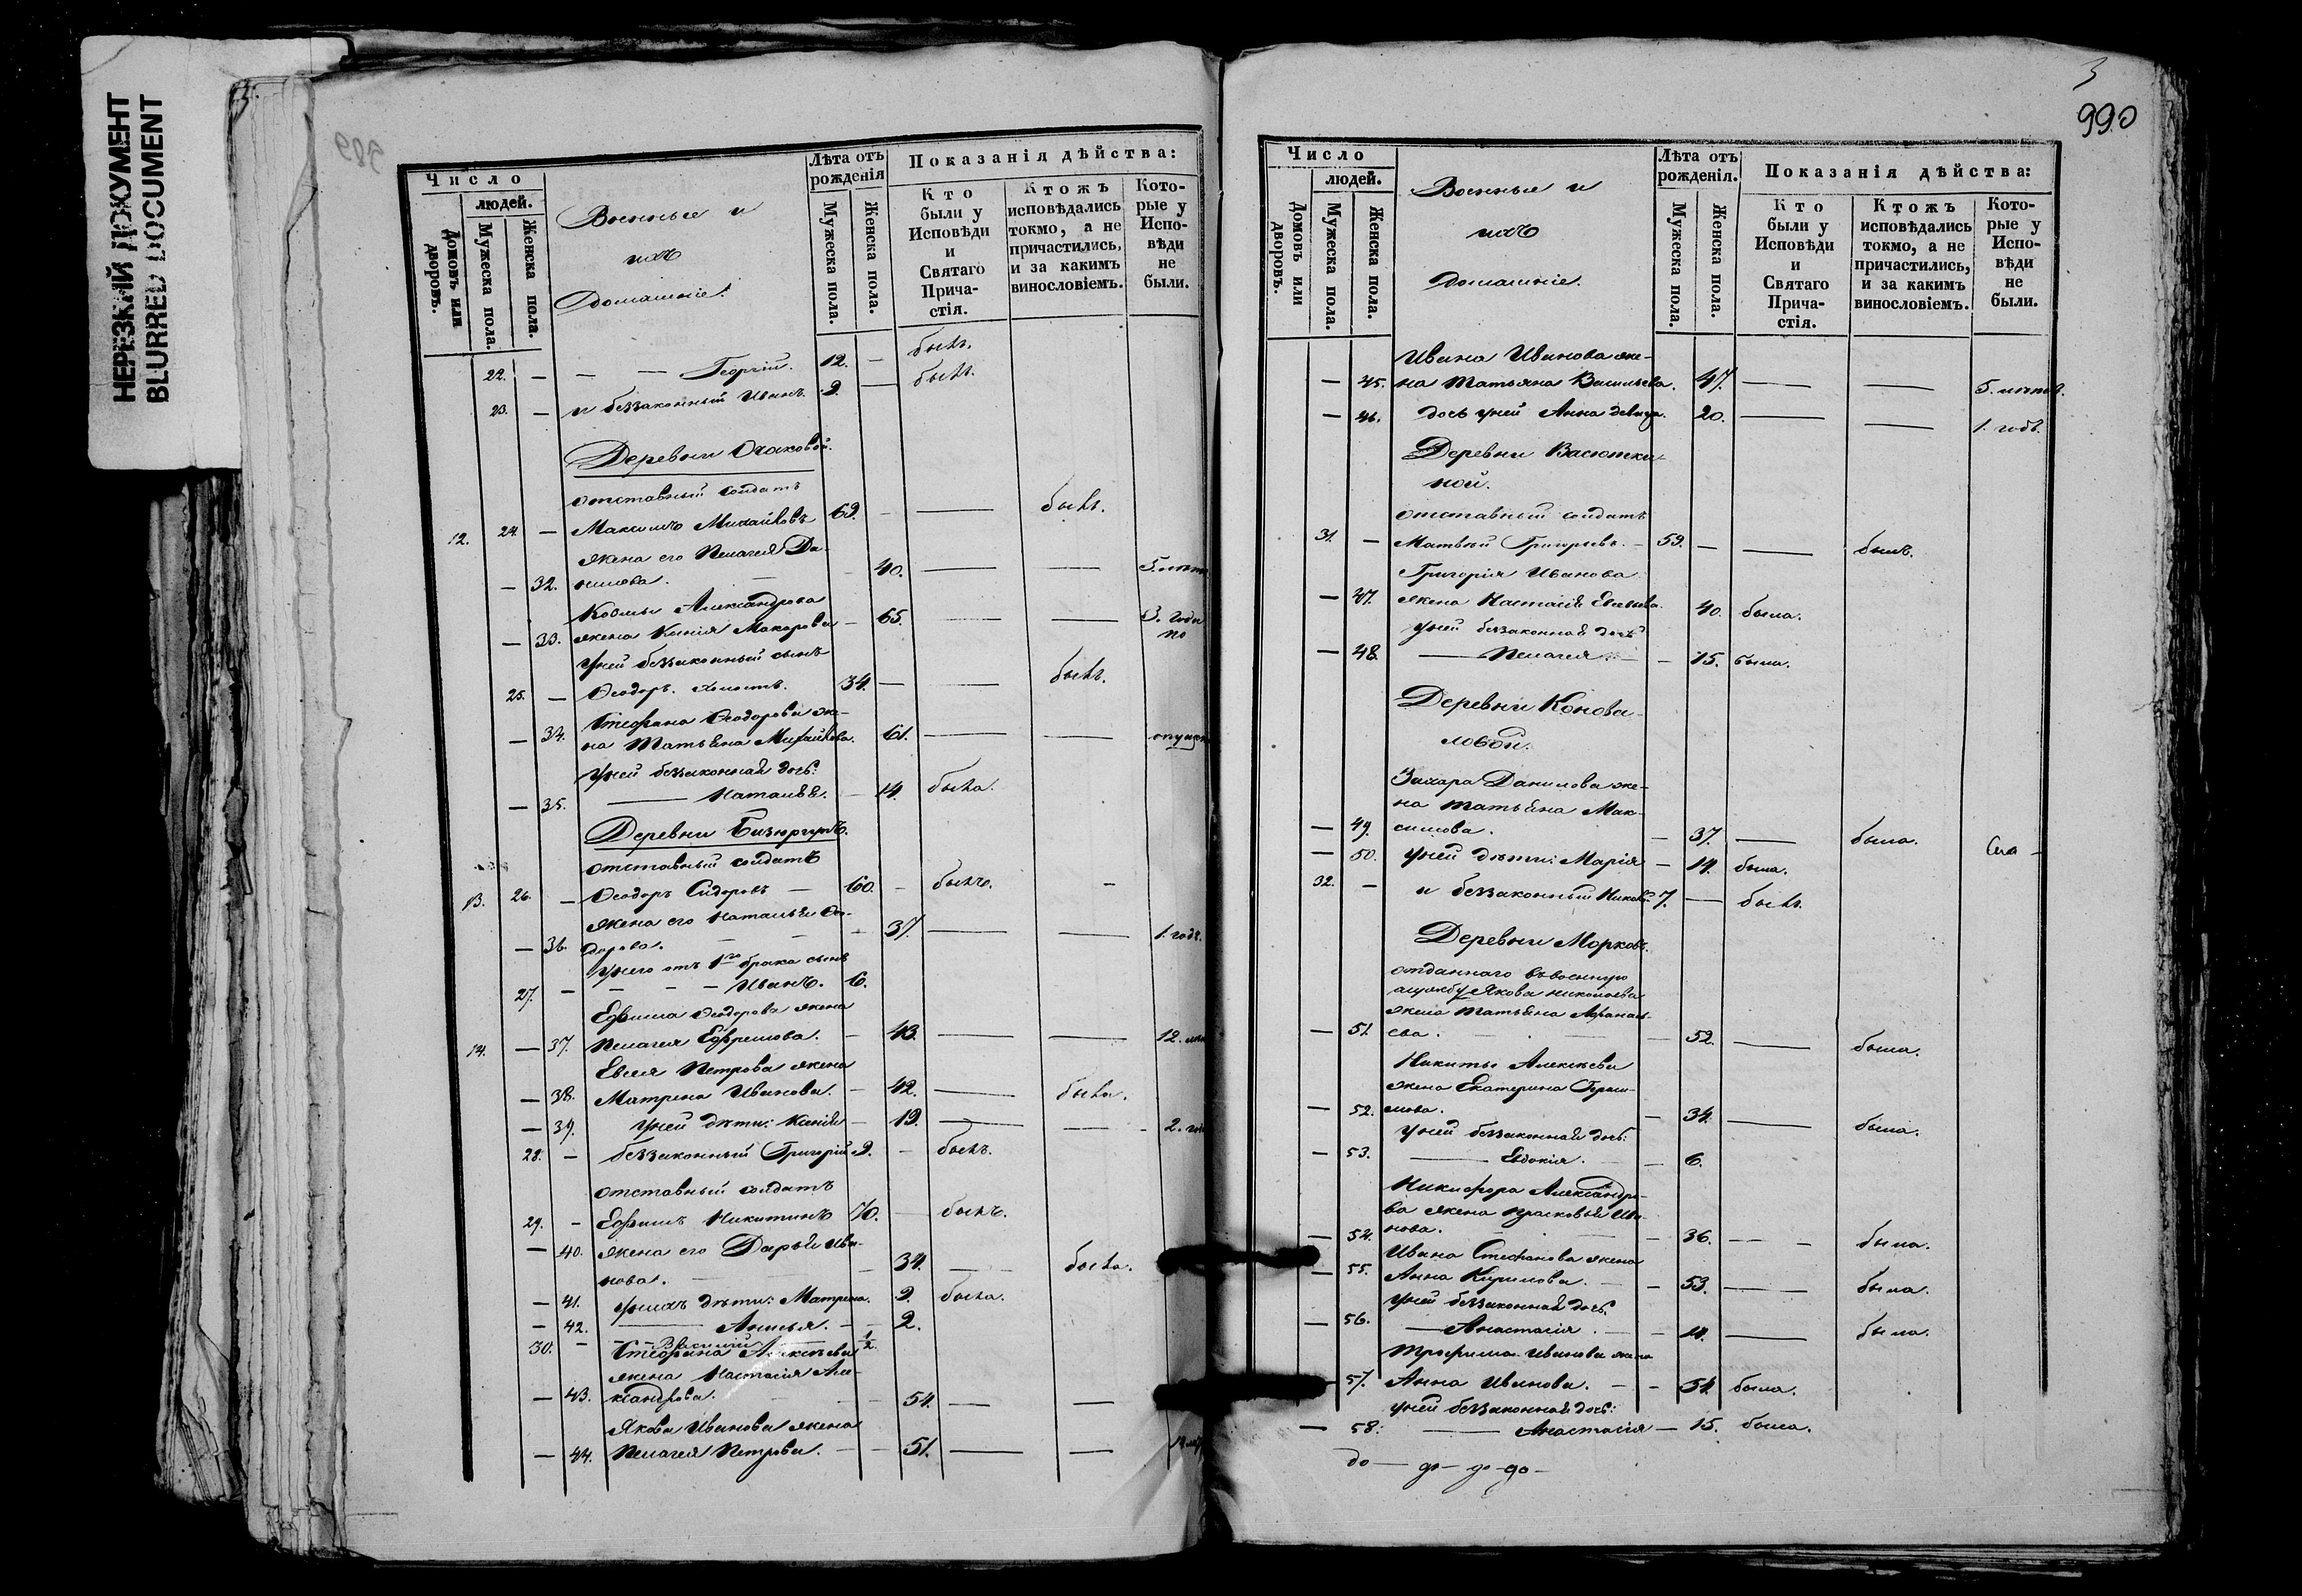 НЕРЕЗКИЙ ДОКУМЕНТ
BLURRED DOCUMENT
989
Число
людей.
Домовъ или дворовъ.
Мужеска пола.
Женска пола.
Военные и
ихъ
домашніе.
Лѣта отъ рожденія
Мужеска пола.
Женска пола.
Показанія дѣйства:
Кто были у Исповѣди и Святаго Прича-стія.
Ктожъ исповѣдались токмо, а не причастились, и за какимъ винословіемъ.
Кото-рые у Испо-вѣди не были.
22. — — — Георгій. 12. — былъ.
23. — и беззаконный Иванъ. 9. — былъ.
Деревни Очаковой.
отставный солдатъ
12. 24. — Максимъ Михайловъ 69. — — былъ.
жена его Пелагея Да-
— 32. нилова. — 40. — — 5. лѣтъ
Козмы Александрова
— 33. жена Ксенія Макарова — 65. — — 3. года
по
у ней беззаконный сынъ
25. — Ѳеодоръ. холостъ. 34. — — былъ.
Стефана Ѳеодорова же-
— 34. на Татьяна Михайлова. 61. — — опущен
у ней беззаконная дочь:
— 35. — Наталья. — 14. была.
Деревни Бизюргупъ.
отставный солдатъ
13. 26. — Ѳеодоръ Сидоровъ — 60. — былъ. —
жена его Наталья Ѳео-
— 36. дорова. — 37. — — 1. годъ.
у него отъ 1го брака сынъ
27. — — — — Иванъ. 6.
Ефима Ѳеодорова жена
14. — 37. Пелагея Ефремова. — 43. — — 12. лѣт
Евсея Петрова жена
— 38. Матрена Иванова. — 42. — была.
— 39. у ней дѣти: Ксенія — 19. — — 2. го
28. — беззаконный Григорій 9. — былъ.
отставный солдатъ
29. — Ефимъ Никитинъ 70. — былъ.
— 40. жена его Дарья Ива-
нова. — 34. — была.
— 41. у нихъ дѣти: Матрена. 9. была.
— 42. — Анисья. — 2.
30. — — — Василій — 1/2.
Стефана Алексѣева
жена Настасія Але-
— 43. ксандрова. — 54. — —
Якова Иванова жена
— 44. Пелагея Петрова. — — 51. — —
3
990
Число
людей.
Домовъ или дворовъ.
Мужеска пола.
Женска пола.
Военные и
ихъ
домашніе.
Лѣта отъ рожденія.
Мужеска пола.
Женска пола.
Показанія дѣйства:
Кто были у Исповѣди и Святаго Прича-стія.
Ктожъ исповѣдались токмо, а не причастились, и за какимъ винословіемъ.
Кото-рые у Испо-вѣди не были.
Ивана Иванова же-
— 45. на Татьяна Васильева. 47. — — 5. лѣтъ.
— 46. дочь у ней Анна девица. 20. — — 1. годъ.
Деревни Васютки-
ной.
отставный солдатъ
31. — Матвей Григорьевъ. — 59. — — былъ.
Григорія Иванова
— 47. жена Настасія 40. была.
у ней беззаконная дочь
— 48. — Пелагея. — — 15. была.
Деревни Конова-
ловой.
Захара Данилова же-
на Татьяна Мак-
— 49. симова. — 37. — была.
— 50. у ней дѣти: Марія — 14. была.
32. — и беззаконный 7. — былъ.
Деревни Морковъ.
отданнаго въ военную
службу Якова Николаева
жена Татьяна Афанась-
— 51. ева. — 52. — была.
Никиты Алексѣева
жена Екатерина Гераси-
— 52. мова. — 34. — была.
у ней беззаконная дочь:
— 53. — Евдокія. — 6.
Никифора Александро-
ва жена Прасковья Ива-
— 54. нова. — 36. — — была.
Ивана Стефанова жена
— 55. Анна Кирилова. — — 53. — была.
у ней беззаконная дочь.
— 56. — Анастасія. — — 14. — была.
Трофима Иванова жена
— 57. Анна Иванова. — — 54. была.
у ней беззаконная дочь:
— 58. — Анастасія — 15. была.